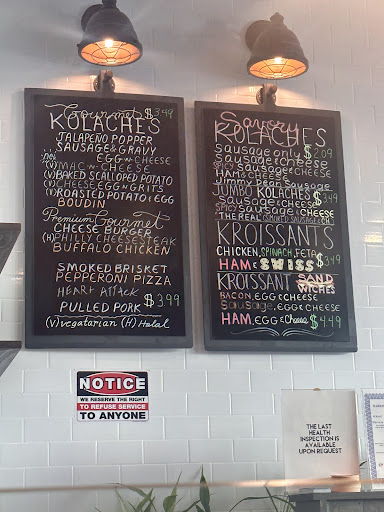 Gourmet $3.49
KOLACHES
JALAPEÑO POPPER
SAUSAGE & GRAVY
EGG N CHEESE
(V) MAC N CHEESE
(V) BAKED SCALLOPED POTATO
(V) CHEESE EGG N GRITS
(V) ROASTED POTATO & EGG
BOUDIN
Premium Gourmet
CHEESE BURGER
(H) PHILLY CHEESESTEAK
BUFFALO CHICKEN
SMOKED BRISKET
PEPPERONI PIZZA
HEART ATTACK
PULLED PORK $3.99
(V) vegatarian (H) Halal
Savory
KOLACHES
Sausage only $2.09
Sausage & cheese
SPICY Sausage & CHEESE
HAM & CHEESE
Jimmy Dean Sausage
JUMBO KOLACHES $3.49
Sausage & cheese
SPICY Sausage & CHEESE
THE REAL
KROISSANTS
CHICKEN, SPINACH, FETA
HAM & SWISS $3.49
KROISSANT SAND
WICHES
BACON, EGG & CHEESE
SauSage, EGG & CHEESE
HAM, EGG & Cheese $4.49
NOTICE
WE RESERVE THE RIGHT
TO REFUSE SERVICE
TO ANYONE
THE LAST
HEALTH
INSPECTION IS
AVAILABLE
UPON REQUEST